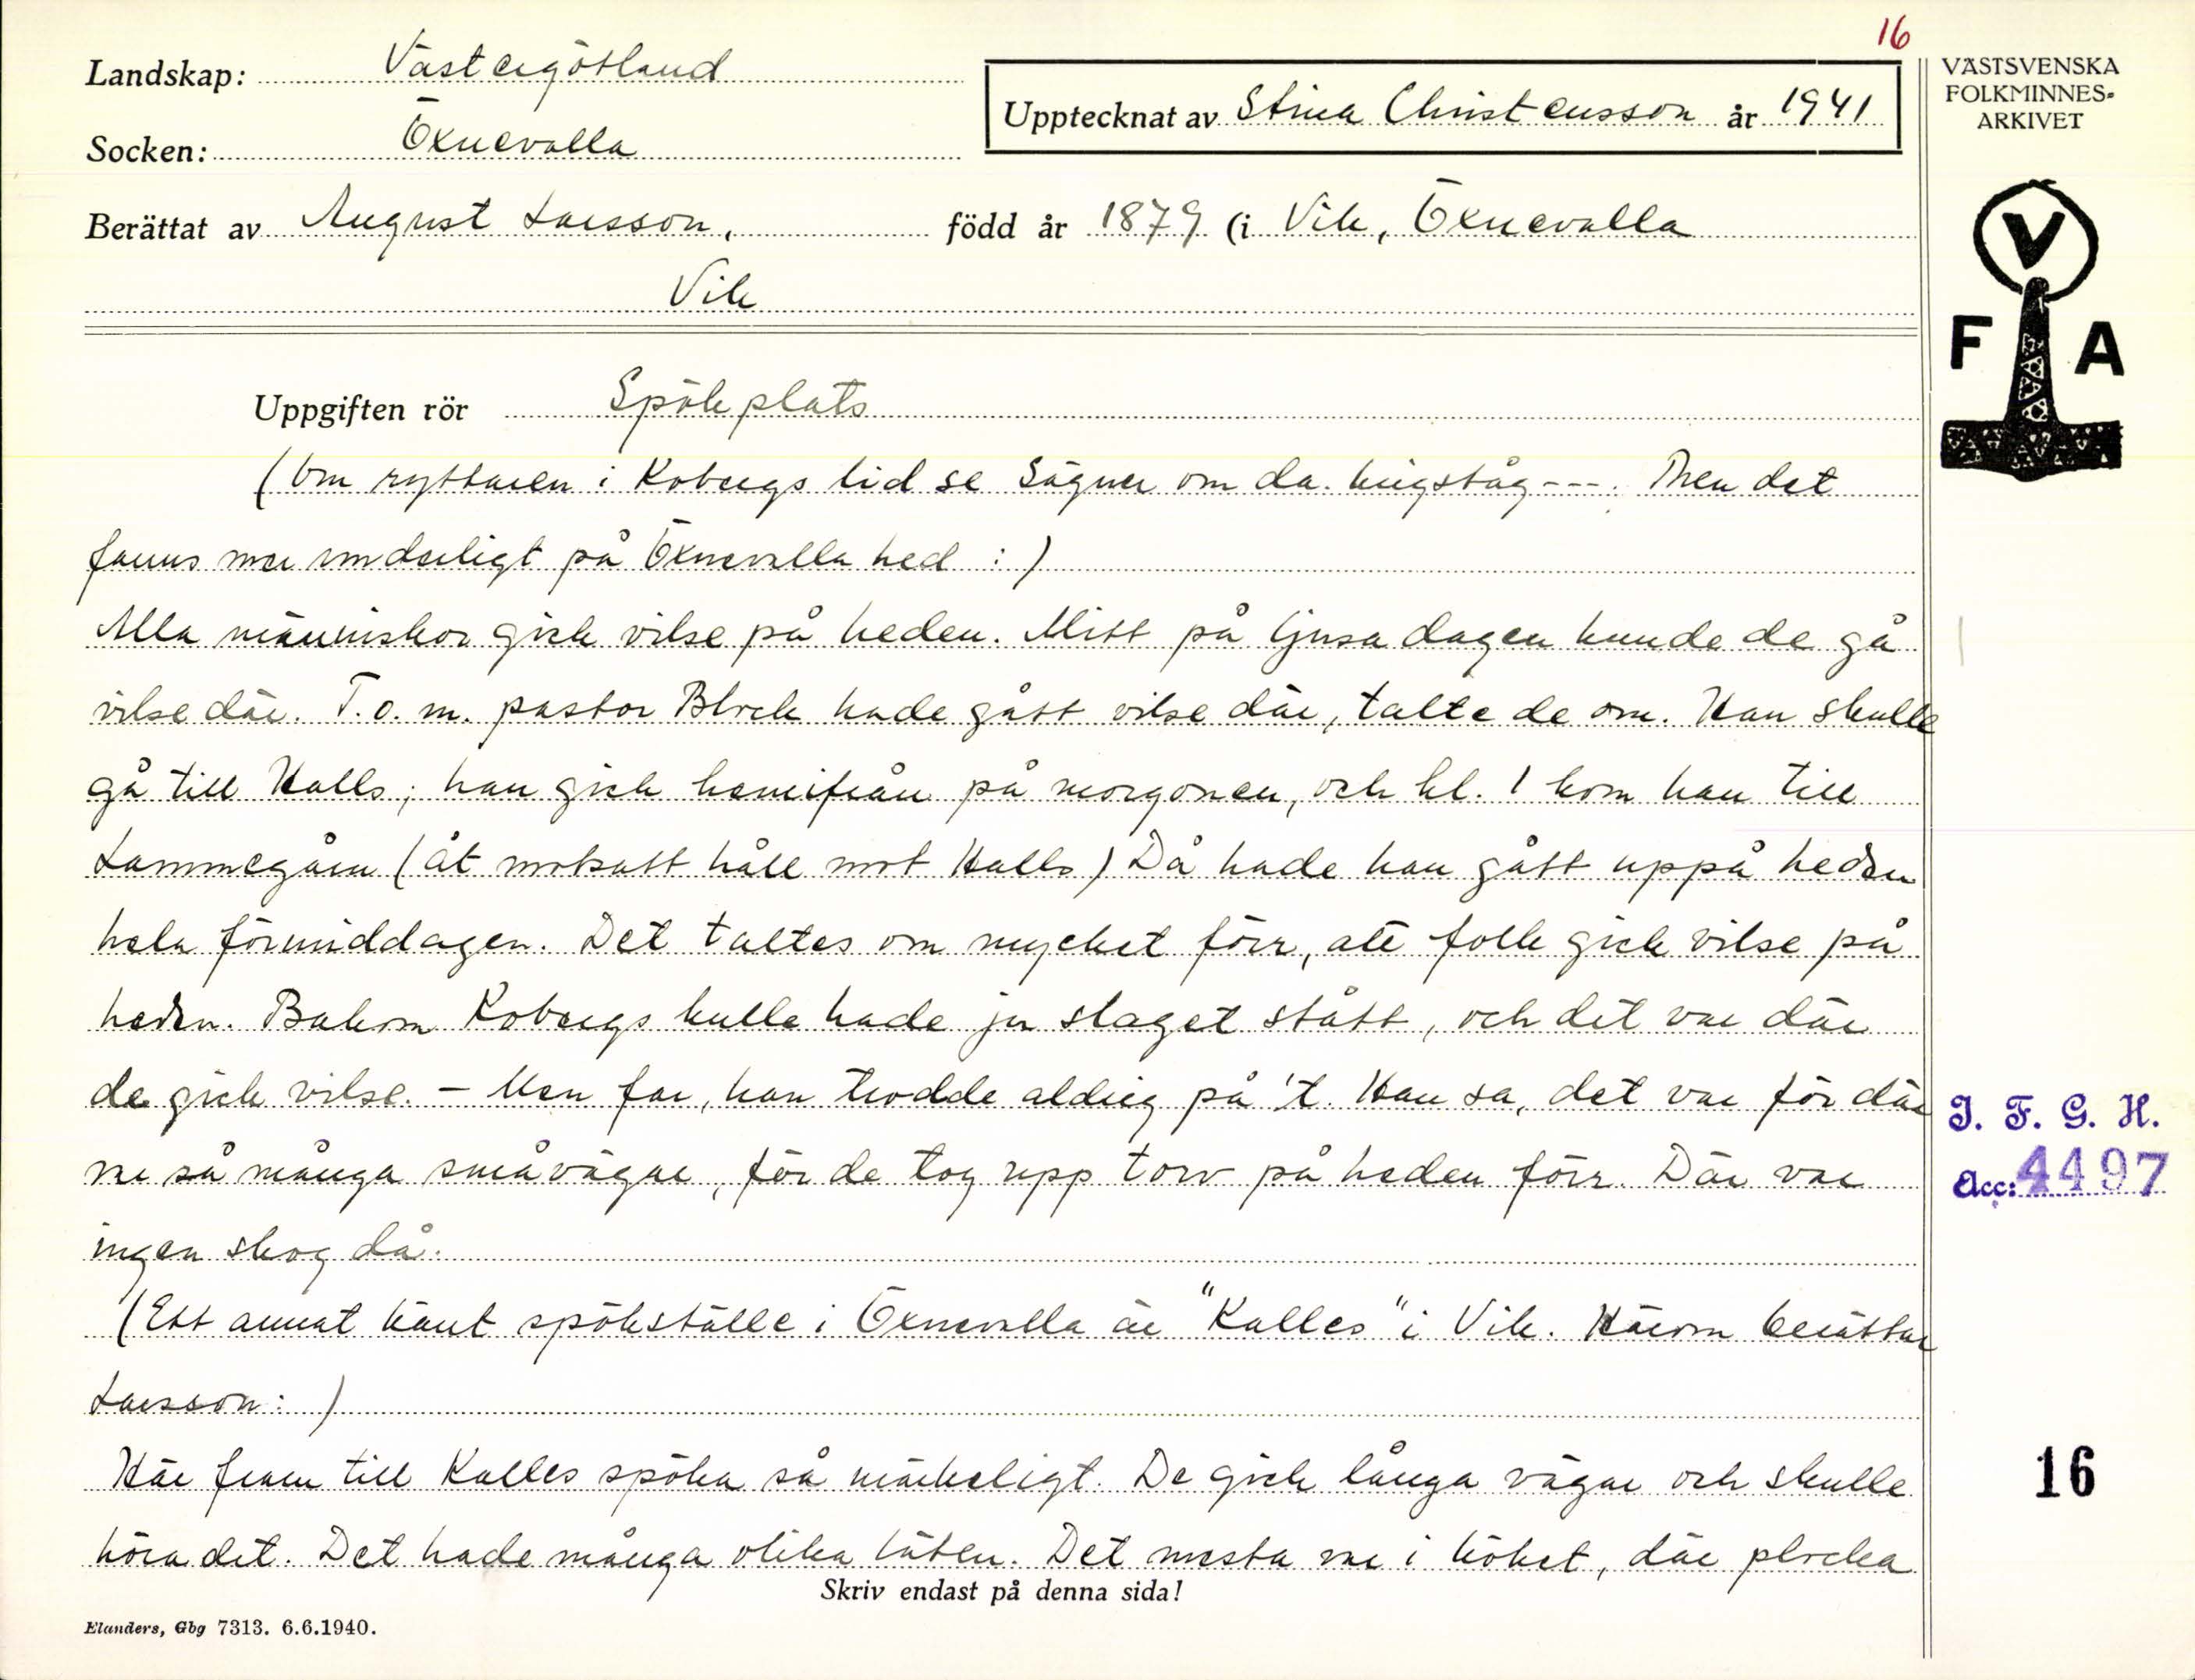 16
Landskap: Västergötland
Socken: Öxnevalla
Upptecknat av Stina Christensson år 1941
VÄSTSVENSKA
FOLKMINNES-
ARKIVET
Berättat av August Larsson, född år 1879 (i Vik, Öxnevalla
Vik
V
F A
Uppgiften rör Spökplats
(Om ryttaren i Kobergs lid se Sägner om da. krigståg---. Men det
fanns mer underligt på Öxnevalla hed:)
Alla människor gick vilse på heden. Mitt på ljusa dagen kunde de gå
vilse där. T.o.m. pastor Block hade gått vilse där, talte de om. Han skulle
gå till Halls; han gick hemifrån på morgonen, och kl. 1 kom han till
Lammegårn (åt motsatt håll mot Halls) Då hade han gått uppå heden
hela förmiddagen. Det taltes om mycket förr, att folk gick vilse på
heden. Bakom Kobergs kulle hade ju slaget stått, och det var där
de gick vilse. - Men far, han trodde aldrig på 't. Han sa, det var för där
var så många småvägar, för de tog upp torv på heden förr. Där var
ingen skog då.
(Ett annat känt spökställe i Öxnevalla är "Kalles" i Vik. Härom berättar
Larsson:)
Här fram till Kalles spöka så märkeligt. De gick långa vägar och skulle
höra det. Det hade många olika läten. Det mesta var i köket, där plocka
Skriv endast på denna sida!
Elanders, Gbg 7313. 6.6.1940.
I. F. G. H.
Acc: 4497
16